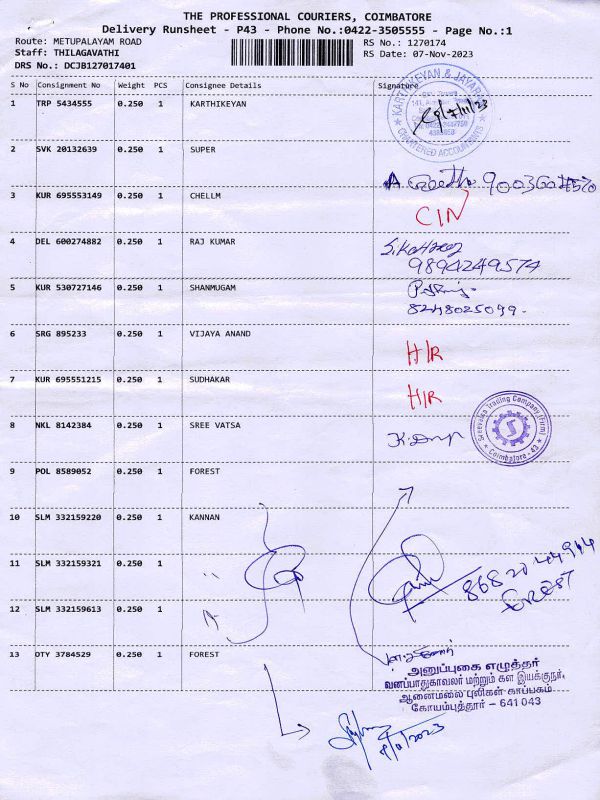 THE PROFESSIONAL COURIERS, COIMBATORE
Delivery Runsheet - P43 - Phone No.:0422-3505555 - Page No.:1
Route: METUPALAYAM ROAD
RS No.: 1270174
Staff: THILAGAVATHI
RS Date: 07-Nov-2023
DRS No.: DCJB127017401
S No Consignment No Weight PCS Consignee Details Signature
1 TRP 5434555 0.250 1 KARTHIKEYAN
KARTHIKEYAN & JAYARAM
CHARTERED ACCOUNTANTS
2 SVK 20132639 0.250 1 SUPER
3 KUR 695553149 0.250 1 CHELLM
CIN
4 DEL 600274882 0.250 1 RAJ KUMAR
9894249574
5 KUR 530727146 0.250 1 SHANMUGAM
8248025099
6 SRG 895233 0.250 1 VIJAYA ANAND
H/R
7 KUR 695551215 0.250 1 SUDHAKAR
H/R
8 NKL 8142384 0.250 1 SREE VATSA
Sreevatsa Trading Company (Firm)
Coimbatore - 43
9 POL 8589052 0.250 1 FOREST
10 SLM 332159220 0.250 1 KANNAN
11 SLM 332159321 0.250 1
12 SLM 332159613 0.250 1
FOREST
13 OTY 3784529 0.250 1 FOREST
அனுப்புகை எழுத்தர்
வனப்பாதுகாவலர் மற்றும் கள இயக்குநர்,
ஆனைமலை புலிகள் காப்பகம்
கோயம்புத்தூர் - 641 043